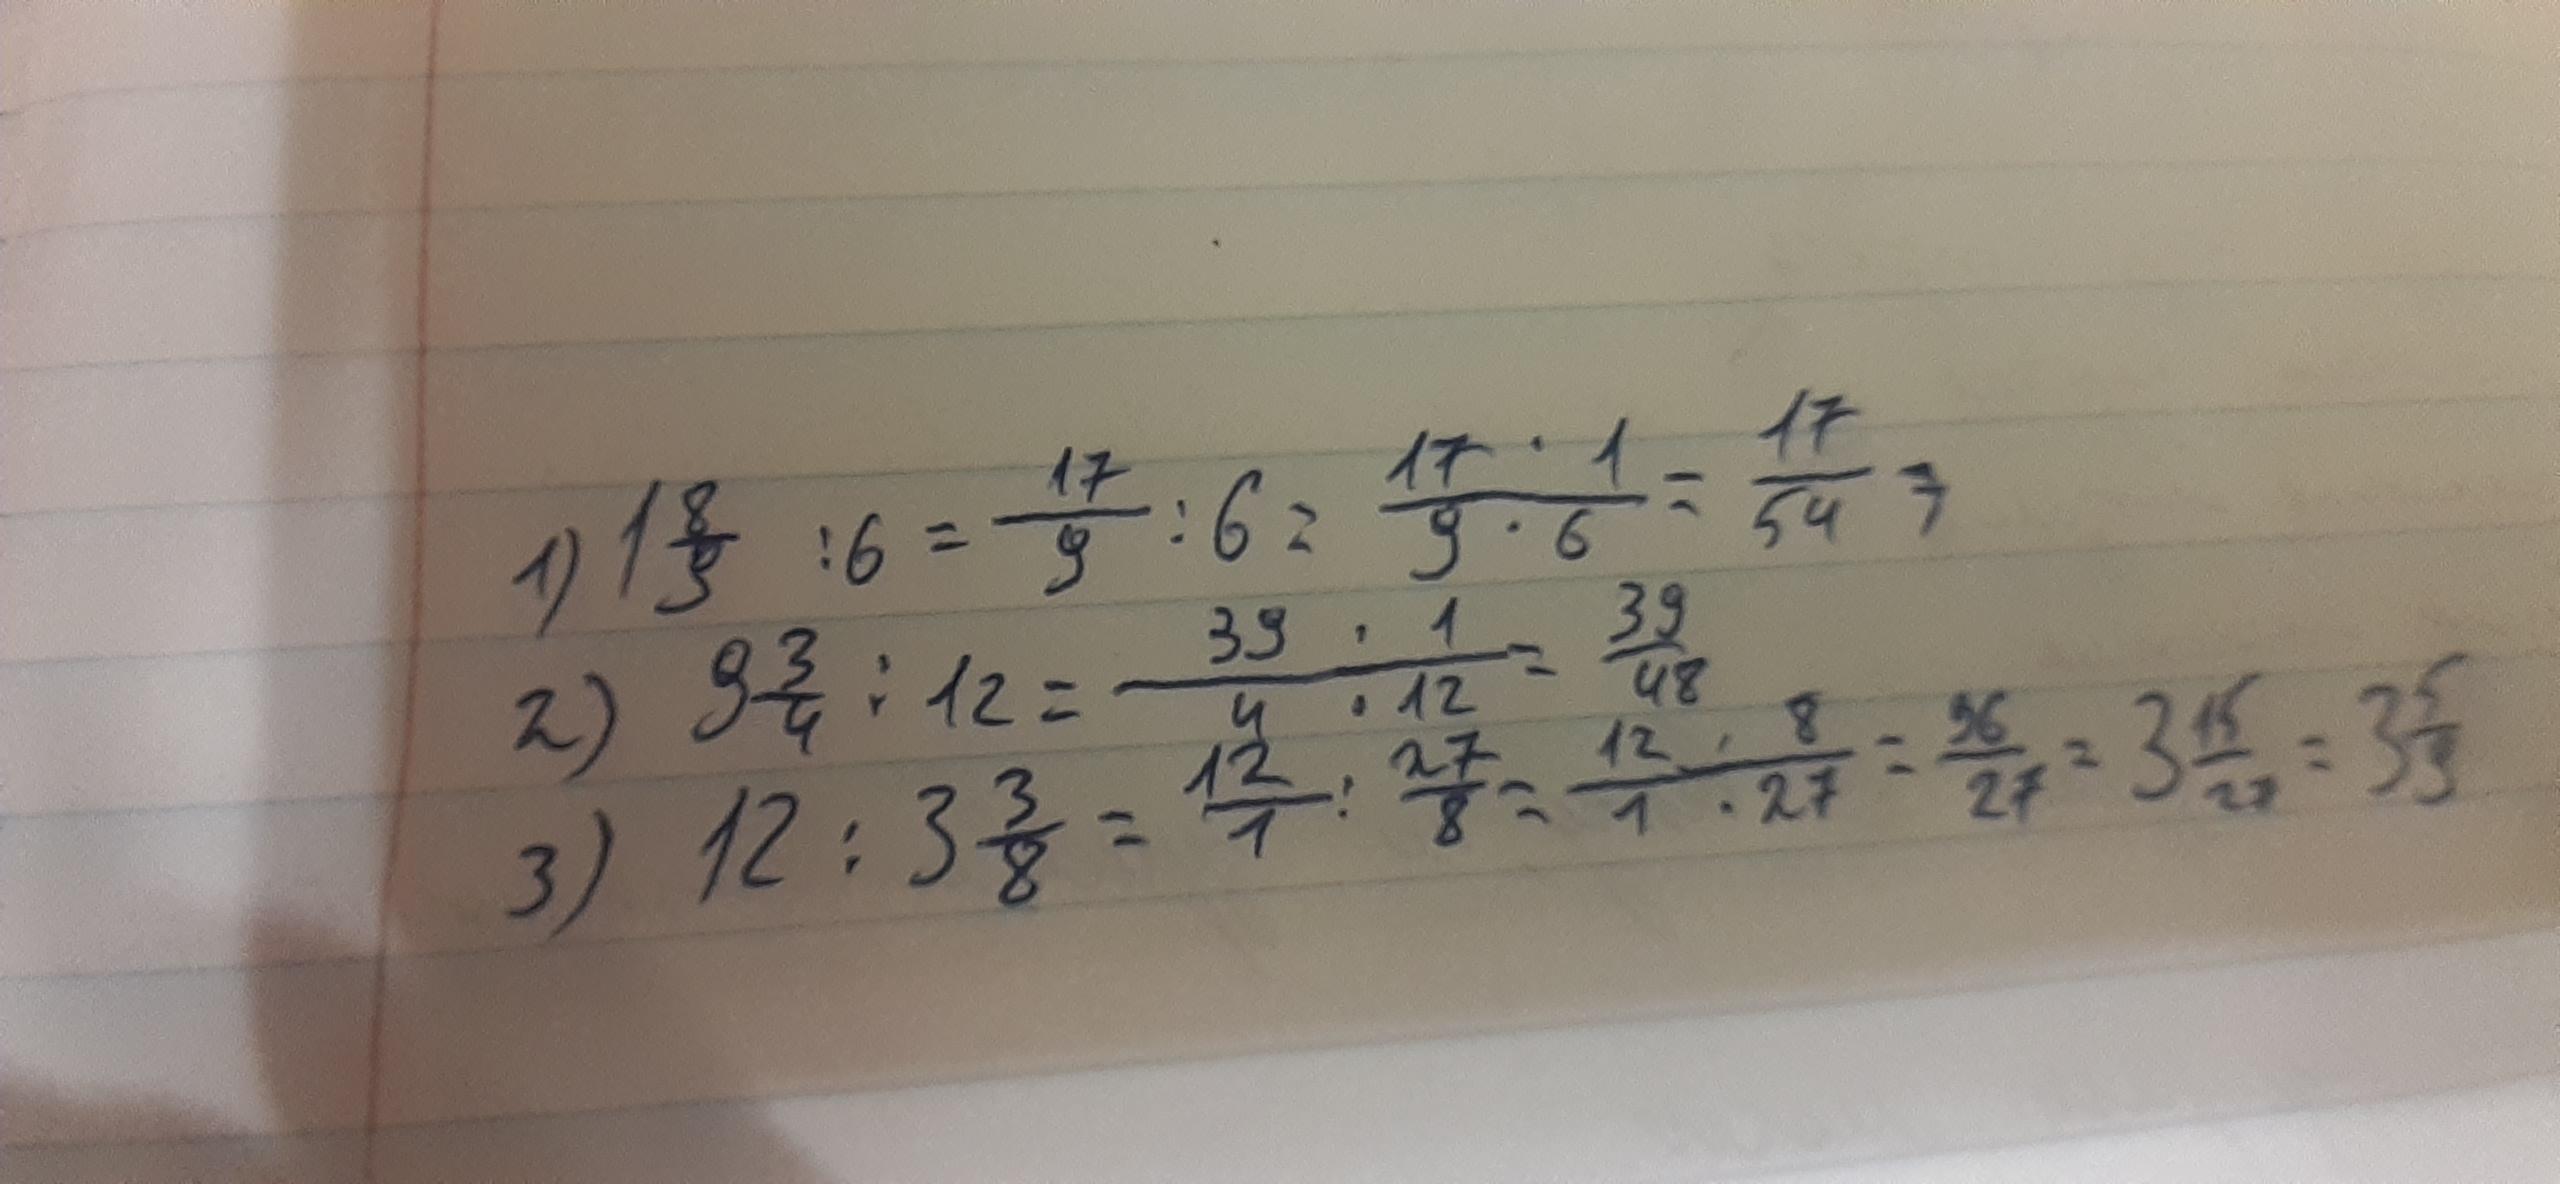 1) 1 8/9 : 6 = 17/9 : 6 = 17 · 1 / 9 · 6 = 17/54 =
2) 9 3/4 : 12 = 39 · 1 / 4 · 12 = 39/48
3) 12 : 3 3/8 = 12/1 : 27/8 = 12 · 8 / 1 · 27 = 96/27 = 3 15/27 = 3 5/9